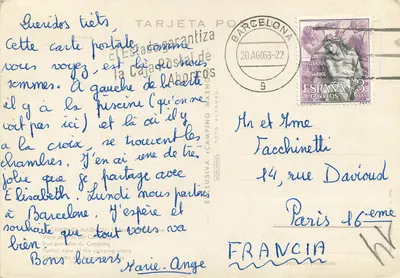 TARJETA PO
Queridos tiets,
Cette carte postale comme
vous voyez, est là où nous
sommes. A gauche de la carte
il y a la piscine (qu'on ne
voit pas ici) et là où il y a
la croix, se trouvent les
chambres. J'en ai une de très
jolie que je partage avec
Elisabeth. Lundi nous partons
à Barcelone. J'espère et
souhaite que tout vous va
bien.
Bons baisers.
Marie-Ange
El Estado garantiza
la Caja Postal de
Ahorros
BARCELONA
20.AGO63-22
9
ESPAÑA
CORREOS
EXCLUSIVA CAMPING MASNOU
Mr et Mme
Tacchinetti
14, rue Davioud
Paris 16-eme
FRANCIA